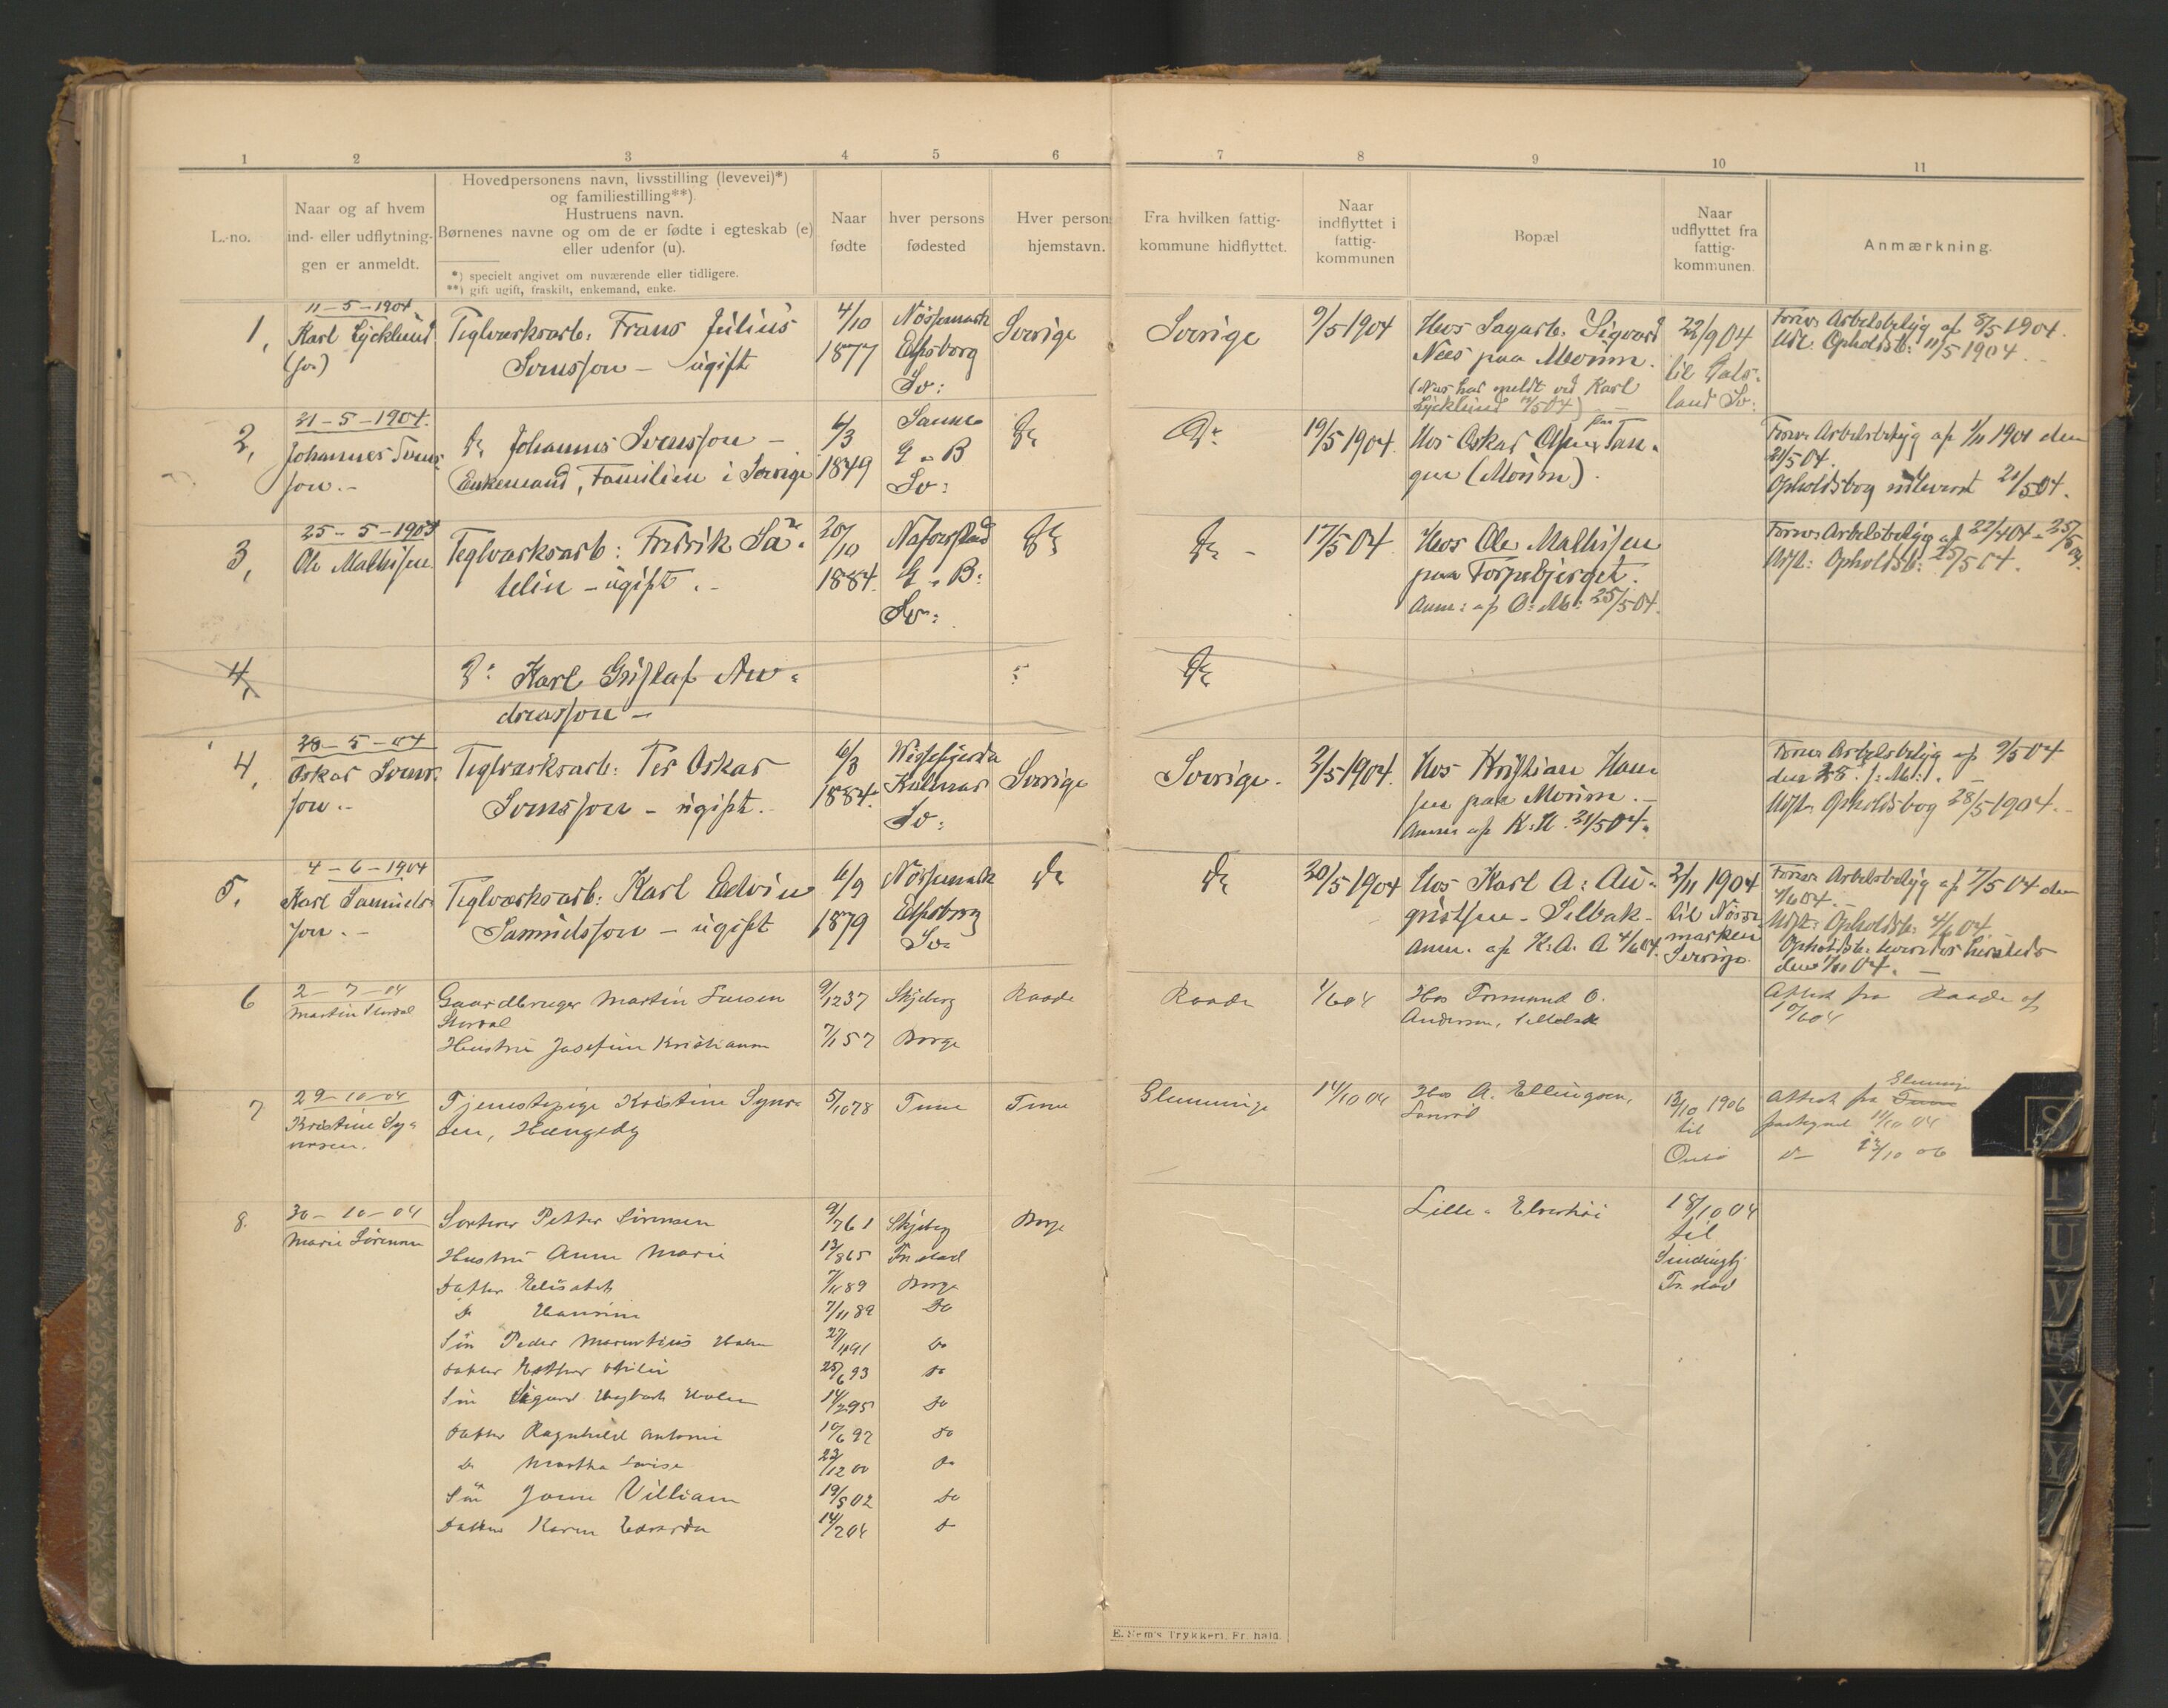 1 2 3 4 5 6 7 8 9 10 11
L.-no.
Naar og af hvem
ind- eller udflytnin-
gen er anmeldt.
Hovedpersonens navn, livsstilling (levevei)*)
og familiestilling**).
Hustruens navn.
Børnenes navne og om de er fødte i egteskab (e)
eller udenfor (u).
*) specielt angivet om nuværende eller tidligere.
**) gift ugift, fraskilt, enkemand, enke.
Naar
fødte
hver persons
fødested
Hver persons
hjemstavn.
Fra hvilken fattig-
kommune hidflyttet.
Naar
indflyttet i
fattig-
kommunen
Bopæl
Naar
udflyttet fra
fattig-
kommunen.
Anmærkning.
1,
11-5-1904
Karl Lycklund
Teglværksarb: Frans Julius
Svensson - ugift
4/10
1877
Nössemark
Elfsborg
Sv:
Sverige
Sverige
9/5 1904
Hos Sagarb. Sigvard
Næs paa Moum.
(Næs har meldt ved Karl
Lycklund 11/5 04)
22/9 04
til Dals-
land Sv:
Forev: Arbeidsbetyg af 8/5 1904.
Udl. Opholdsb: 11/5 1904.
2,
21-5-1904.
Johannes Svens-
son.-
Do Johannes Svensson -
Enkemand, Familien i Sverige
6/3
1849
Sanne
G - B
Sv:
Do
Do
19/5 1904.
Hos Oskar Olsen paa Tan-
gen (Moum).
Forev: Arbeidsbetyg af 1/11 1901 den
21/5 04.
Opholdsbog udleveret 21/5 04.
3,
25-5-1903
Ole Mathisen
Teglværksarb: Fredrik Sä-
telin - ugift.-
20/10
1884.
Naverstad
G - B:
Sv:
Do
Do -
17/5 04
Hos Ole Mathisen
paa Torpebjerget.
Anm: af O: M: 25/5 04.
Forev: Arbeidsbetyg af 22/4 04 - 25/5 04.
Udst: Opholdsb: 25/5 04.
4,
Do Karl Gustaf An-
dreasson -
Do
4,
28-5-04
Oskar Svens-
son.-
Teglværksarb: Per Oskar
Svensson - ugift.
6/3
1884.
Wissefjerda
Kalmar
Sv:
Sverige
Sverige.
2/5 1904.
Hos Kristian Han-
sen paa Moum.-
Anm af K: H. 21/5 04.
Forev: Arbeidsbetyg af 9/5 04
den 28. s: M:.
Udst. Opholdsbog 28/5 1904.
5.
4-6-1904
Karl Samuels-
son.-
Teglværksarb: Karl Edvin
Samuelsson - ugift
6/9
1879
Nössemark
Elfsborg
Sv:
Do
Do
20/5 1904
Hos Karl A: Au-
gustsen - Selbak-
Anm. af K: A. A 4/6 04.
2/11 1904
til Nösse
marken
Sverige.
Forev: Arbeidsbetyg af 7/5 04 den
4/6 04.-
Udst: Opholdsb: 4/6 04
Opholdsb:
6
2-7-04
Martin Stordal
Gaardbruger Martin Larsen
Stordal
Hustru Josefine Kristianne
9/12 37
7/1 57
Skjeberg
Borge
Raade
Raade
1/6 04
Hos Formand O.
Andersen, Selbak
Attest fra Raade af
10/6 04
7
29-10-04
Kristine Sy-
versen.
Tjenestepige Kristine Syver-
sen, Haugeby
5/10 78
Tune
Tune
Glemminge
14/10 04
Hos A. Ellingsen,
13/10 1906
til
Onsø
Attest fra Tune Glemminge
11/10 04
Do 12/10 06
8.
30-10-04
Marie Sörensen
Sorterer Petter Sörensen
Hustru Anne Marie
Datter Elisabeth
Do Hansine
Sön Peder
Datter Esther
Sön Sigurd
Datter Ragnhild Antonie
Do Martha Lovise
Sön John William
Datter Karen Edvarda
9/7 61
13/8 65
7/11 89
7/11 89
25/6 93
14/2 95
10/6 97
23/12 00
19/5 02
14/2 04
Skjeberg
Fr. stad
Borge
Do
Do
Do
Do
Do
Do
Do
Do
Borge
Lille - Elverhöi
18/10 04
til
Fr. stad
E. Sem's Trykkeri, Fr.hald.
S T U V X Y